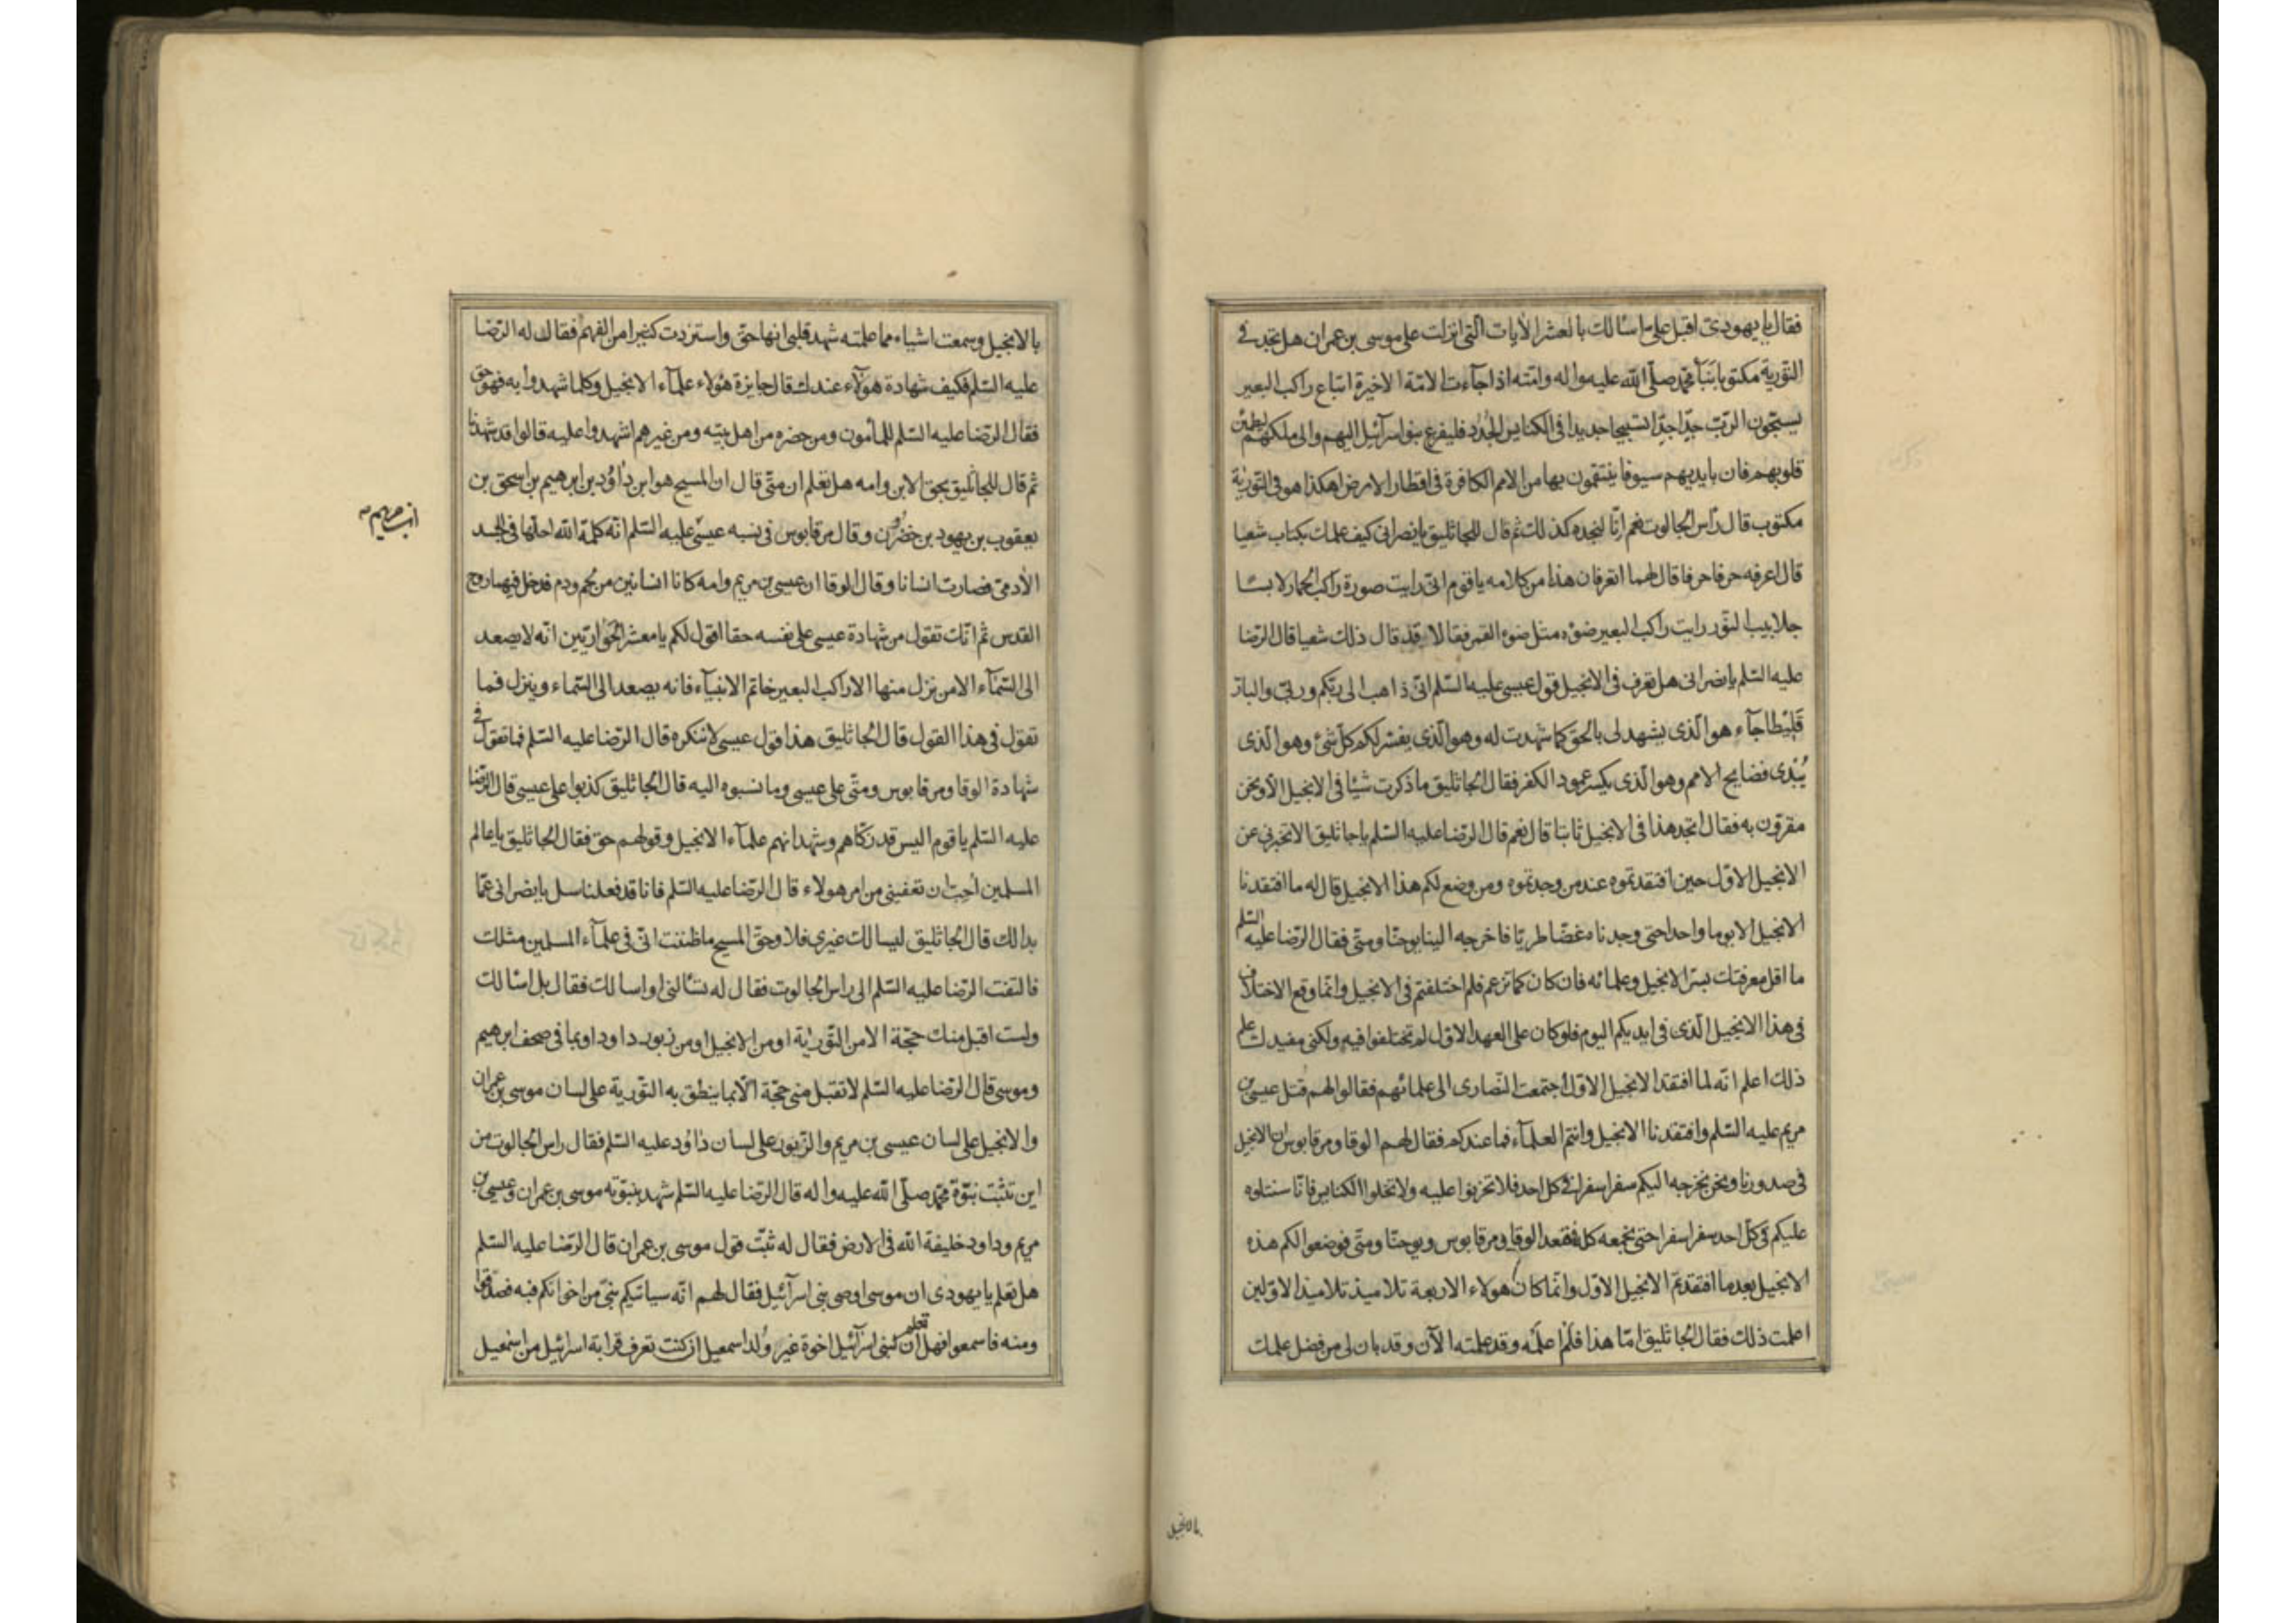 فقال يا يهودى اقبل علىّ اسألك بالعشر الأيات التى انزلت على موسى بن عمران هل تجد فى
التورية مكتوبا بنبأ محمّد صلّى الله عليه واله وامّته اذا جاءت الامّة الاخيرة اتباع راكب البعير
يسبّحون الربّ جدّا جدّا تسبيحا جديدا فى الكنايس الجُدُد فليفرع بنو اسرآئيل اليهم والى ملكهم لتطمئن
قلوبهم فان بايديهم سيوفا ينتقمون بها من الامم الكافرة فى اقطار الارض اهكذا هو فى التورية
مكتوب قال رأس الجالوت نعم انّا لنجده كذلك ثم قال للجاثليق يا نصرانى كيف علمك بكتاب شعيا
قال اعرفه حرفا حرفا قال لهما اتعرفان هذا من كلامه يا قوم انّى رايت صورة راكب الحمار لابسًا
جلابيب النّور رايت راكب البعير ضوءه مثل ضوء القمر فقالا قد قال ذلك شعيا قال الرّضا
عليه السّلم يا نصرانى هل تعرف فى الانجيل قول عيسى عليه السّلم انّى ذاهب الى ربّكم وربّى والبار
قليطا جآء هو الّذى يشهد لى بالحقّ كما شهدت له وهو الّذى يفسّر لكم كلّ شئ وهو الّذى
يُبْدى فضايح الامم وهو الّذى يكسر عمود الكفر فقال الجاثليق ما ذكرت شيئا فى الانجيل الّا ونحن
مقرّون به فقال اتجد هذا فى الانجيل ثابتا قال نعم قال الرّضا عليه السّلم يا جاثليق الا تخبرنى عن
الانجيل الاوّل حين افتقدتموه عند من وجدتموه ومن وضع لكم هذا الانجيل قال له ما افتقدنا
الانجيل الا يوما واحدا حتى وجدناه غضّا طريّا فاخرجه الينا يوحنّا ومتّى فقال الرّضا عليه السّلم
ما اقل معرفتك بسرّ الانجيل وعلمائه فان كان كما تزعم فلم اختلفتم فى الانجيل وانّما وقع الاختلاف
فى هذا الانجيل الّذى فى ايديكم اليوم فلو كان على العهد الاوّل لم تختلفوا فيه ولكنى مفيدك علم
ذلك اعلم انّه لما افتقد الانجيل الاوّل اجتمعت النّصارى الى علمائهم فقالوا لهم قتل عيسى بن
مريم عليه السّلم وافتقدنا الانجيل وانتم العلمآء فما عندكم فقال لهم الوقا ومرقابوس ان الانجيل
فى صدورنا ونحن نخرجه اليكم سفرا سفرا فى كل احد فلا تحزنوا عليه ولا تخلوا الكنايس فانّا سنتلوه
عليكم فى كلّ احد سفرا سفرا حتى نجمعه كله فقعد الوقا ومرقابوس ويوحنّا ومتّى فوضعوا لكم هذه
الانجيل بعد ما افتقدتم الانجيل الاوّل وانّما كان هولاء الاربعة تلاميذ تلاميذ الاوّلين
اعلمت ذلك فقال الجاثليق امّا هذا فلم اعلمه وقد علمته الآن وقد بان لى من فضل علمك
بالانجيل
بالانجيل وسمعت اشياء مما علمته شهد قلبى انها حقّ واستزدت كثيرا من الفهم فقال له الرّضا
عليه السّلم فكيف شهادة هؤلآء عندك قال جايزة هؤلاء علمآء الانجيل وكلما شهدوا به فهو حق
فقال الرّضا عليه السّلم للمأمون ومن حضره من اهل بيته ومن غيرهم اشهدوا عليه قالوا قد شهدنا
ثم قال للجاثليق بحق الابن وامه هل تعلم ان متّى قال ان المسيح هو ابن داوُد بن ابرهيم بن اسحق بن
يعقوب بن يهود بن خضرون وقال مرقابوس فى نسبه عيسى عليه السّلم انّه كلمة الله احلّها فى الجسد
الأدمىّ فصارت انسانا وقال الوقا ان عيسى بن مريم وامه كانا انسانين من لحم ودم فدخل فيهما روح
القدس ثم انّك تقول من شهادة عيسى على نفسه حقا اقول لكم يا معشر الحواريّين انّه لا يصعد
الى السّمآء الا من نزل منها الا راكب البعير خاتم الانبيآء فانه يصعد الى السّماء وينزل فما
تقول فى هذا القول قال الجاثليق هذا قول عيسى لا ننكره قال الرّضا عليه السّلم فما تقول فى
شهادة الوقا ومرقابوس ومتّى على عيسى وما نسبوه اليه قال الجاثليق كذبوا على عيسى قال الرّضا
عليه السّلم يا قوم اليس قد زكّاهم وشهد انهم علمآء الانجيل وقولهم حق فقال الجاثليق يا عالم
المسلمين احبّ ان تعفينى من امر هولاء قال الرّضا عليه السّلم فانا قد فعلنا سل يا نصرانى عمّا
بدا لك قال الجاثليق ليسالك غيرى فلا وحقّ المسيح ما ظننت انّ فى علمآء المسلمين مثلك
فالتفت الرّضا عليه السّلم الى راس الجالوت فقال له تسألنى او اسالك فقال بل اسألك
ولست اقبل منك حجّة الا من التّورية او من الانجيل او من زبور داود او بما فى صحف ابرهيم
وموسى قال الرّضا عليه السّلم لا تقبل منى حجّة الّا بما ينطق به التّورية على لسان موسى بن عمران
والانجيل على لسان عيسى بن مريم والزّبور على لسان داوُد عليه السّلم فقال راس الجالوت من
اين تثبت نبوّة محمّد صلّى الله عليه واله قال الرّضا عليه السّلم شهد بنبوّته موسى بن عمران وعيسى بن
مريم وداود خليفة الله فى الارض فقال له ثبّت قول موسى بن عمران قال الرّضا عليه السّلم
هل تعلم يا يهودى ان موسى اوصى بنى اسرآئيل فقال لهم انّه سياتيكم نبىّ من اخوانكم فبه فصدّقوا
ومنه فاسمعوا فهل تعلم ان لبنى اسرآئيل اخوة غير ولد اسمعيل ان كنت تعرف قرابة اسرائيل من اسمعيل